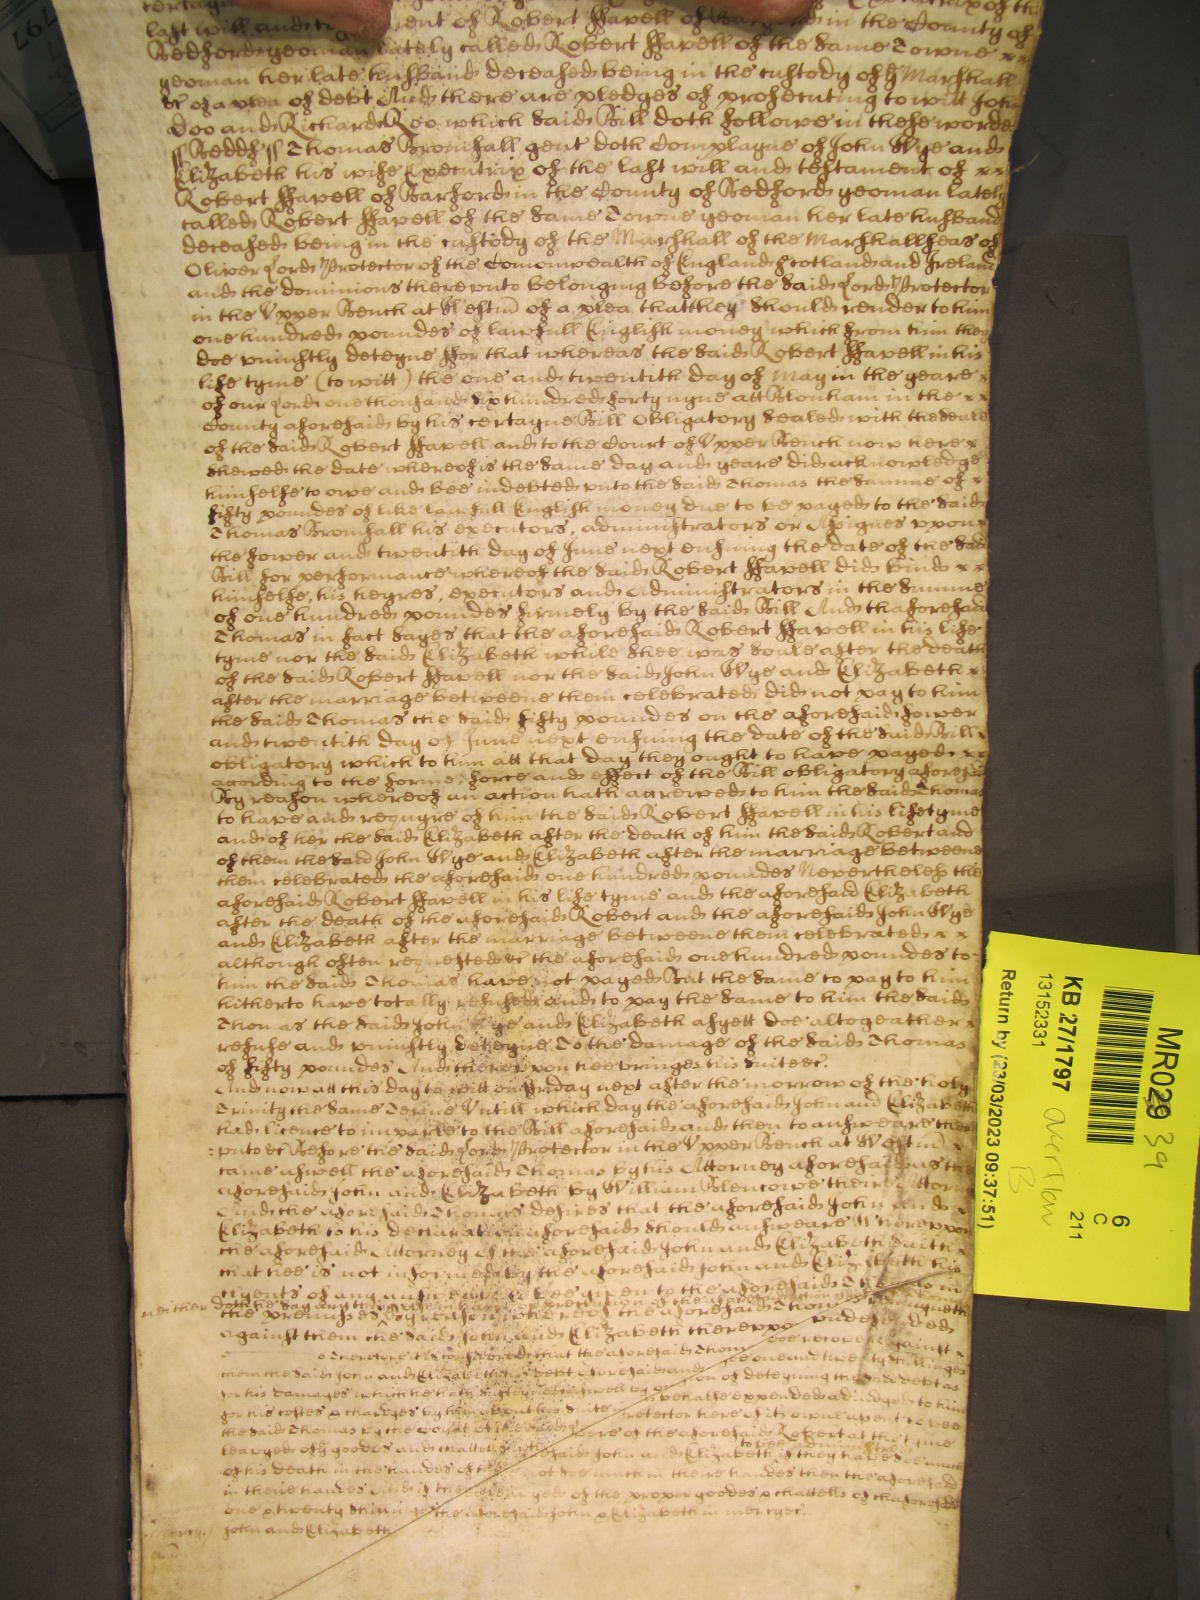 last will and testament of Robert Ffavell of Barford in the County of
Bedford yeoman lately called Robert Ffavell of the same Towne x x
yeoman her late husband deceased being in the custody of the Marshall
&c of a plea of debt And there are pledges of prosecuting to witt John
Doo and Richard Roo which said Bill doth followe in these wordes
ss Beddf ss Thomas Bromsall gent doth Complayne of John Wye and
Elizabeth his wife Executrix of the last will and testament of x x
Robert Ffavell of Barford in the County of Bedford yeoman lately
called Robert Ffavell of the same Towne yeoman her late husband
deceased being in the custody of the Marshall of the Marshallseas of
Oliver Lord Protector of the Comonwealth of England Scotland and Ireland
and the dominions thereunto belonging before the said Lord Protector
in the Upper Bench at Westm of a plea that they should render to him
one hundred poundes of lawfull English money which from him they
doe uniustly deteyne ffor that whereas the said Robert Ffavell in his
life tyme (to witt) the one and twentith day of May in the yeare x
of our Lord one thousand six hundred forty nyne att Blonham in the x x
County aforesaid by his certayne Bill Obligatory sealed with the seale
of the said Robert Ffavell and to the Court of Upper Bench now here x
shewed the date whereof is the same day and yeare did acknowledge
himselfe to owe and bee indebted unto the said Thomas the summe of x
fifty poundes of like lawfull English money due to be payed to the said
Thomas Bromsall his executors, administrators or Assignes uppon x
the fower and twentith day of June next ensuing the date of the said
Bill for performance whereof the said Robert Ffavell did binde x x
himselfe, his heyres, executors and Administrators in the summe
of one hundred poundes firmely by the said Bill And the aforesaid
Thomas in fact sayes that the aforesaid Robert Ffavell in his life
tyme nor the said Elizabeth while shee was soule after the death
of the said Robert Ffavell nor the said John Wye and Elizabeth x
after the marriage betweene them celebrated did not pay to him
the said Thomas the said fifty poundes on the aforesaid fower
and twentith day of June next ensuing the date of the said Bill x
obligatory which to him att that day they ought to have payed x x
acording to the forme, force and effect of the Bill obligatory aforesaid
By reason whereof an action hath accrewed to him the said Thomas
to have and requyre of him the said Robert Ffavell in his life tyme
and of her the said Elizabeth after the death of him the said Robert and
of them the said John Wye and Elizabeth after the marriage betweene
them celebrated the aforesaid one hundred poundes Neverthelesse the
aforesaid Robert Ffavell in his life tyme and the aforesaid Elizabeth
after the death of the aforesaid Robert and the aforesaid John Wye
and Elizabeth after the marriage betweene them celebrated x x
although often requested &c the aforesaid one hundred poundes to
him the said Thomas have not payed But the same to pay to him
hitherto have totally refused and to pay the same to him the said
Thomas the said John Wye and Elizabeth as yett doe altogeather x
refuse and uniustly deteyne To the damage of the said Thomas
of fifty poundes And thereuppon hee bringes his suite &c.
And now att this day to witt on fryday next after the morrow of the holy
Trinity the same Terme Untill which day the aforesaid John and Elizabeth
had licence to imparle to the Bill aforesaid and then to answeare there
unto &c Before the said Lord Protector in the Upper Bench at Westm x
came aswell the aforesaid Thomas by his Attorney aforesaid as the
aforesaid John and Elizabeth by William Blencowe their Attorn
And the aforesaid Thomas desires that the aforesaid John and x
Elizabeth to his declaration aforesaid should answeare Whereuppon
the aforesaid Attorney of the aforesaid John and Elizabeth saith x
that hee is not informed by the aforesaid John and Elizabeth his
clyents of any answeare to bee given to the aforesaid Thomas in
neither doth hee say any thing in barr or preclusion of the
the premisses By reason whereof the aforesaid Thomas
against them the said John and Elizabeth thereuppon undefended
Therefore it is considered that the aforesaid Thomas doe recover against
them the said John and Elizabeth his debt aforesaid and one and twenty shillinges
for his damages which hee hath susteyned aswell by occasion of deteyning the said debt as
for his costes & chardges by him about his suite in behalfe expended adiudged to him
the said Thomas by the Court of the said Lord Protector here of its owne assent to bee
leavyed of the goodes and chattells which were of the aforesaid Robert at the tyme
of his death in the handes of the aforesaid John and Elizabeth to bee administred if they have soe much
in theire handes And if they have not soe much in theire handes then the aforesaid
one & twenty shillinges of the proper goodes & chattells of the aforesaid
John and Elizabeth the aforesaid John & Elizabeth in mercy &c.
mercy
MR029 39
KB 27/1797
13152331
Return by (23/03/2023 09:37:51)
Overflow
B
6
C
211